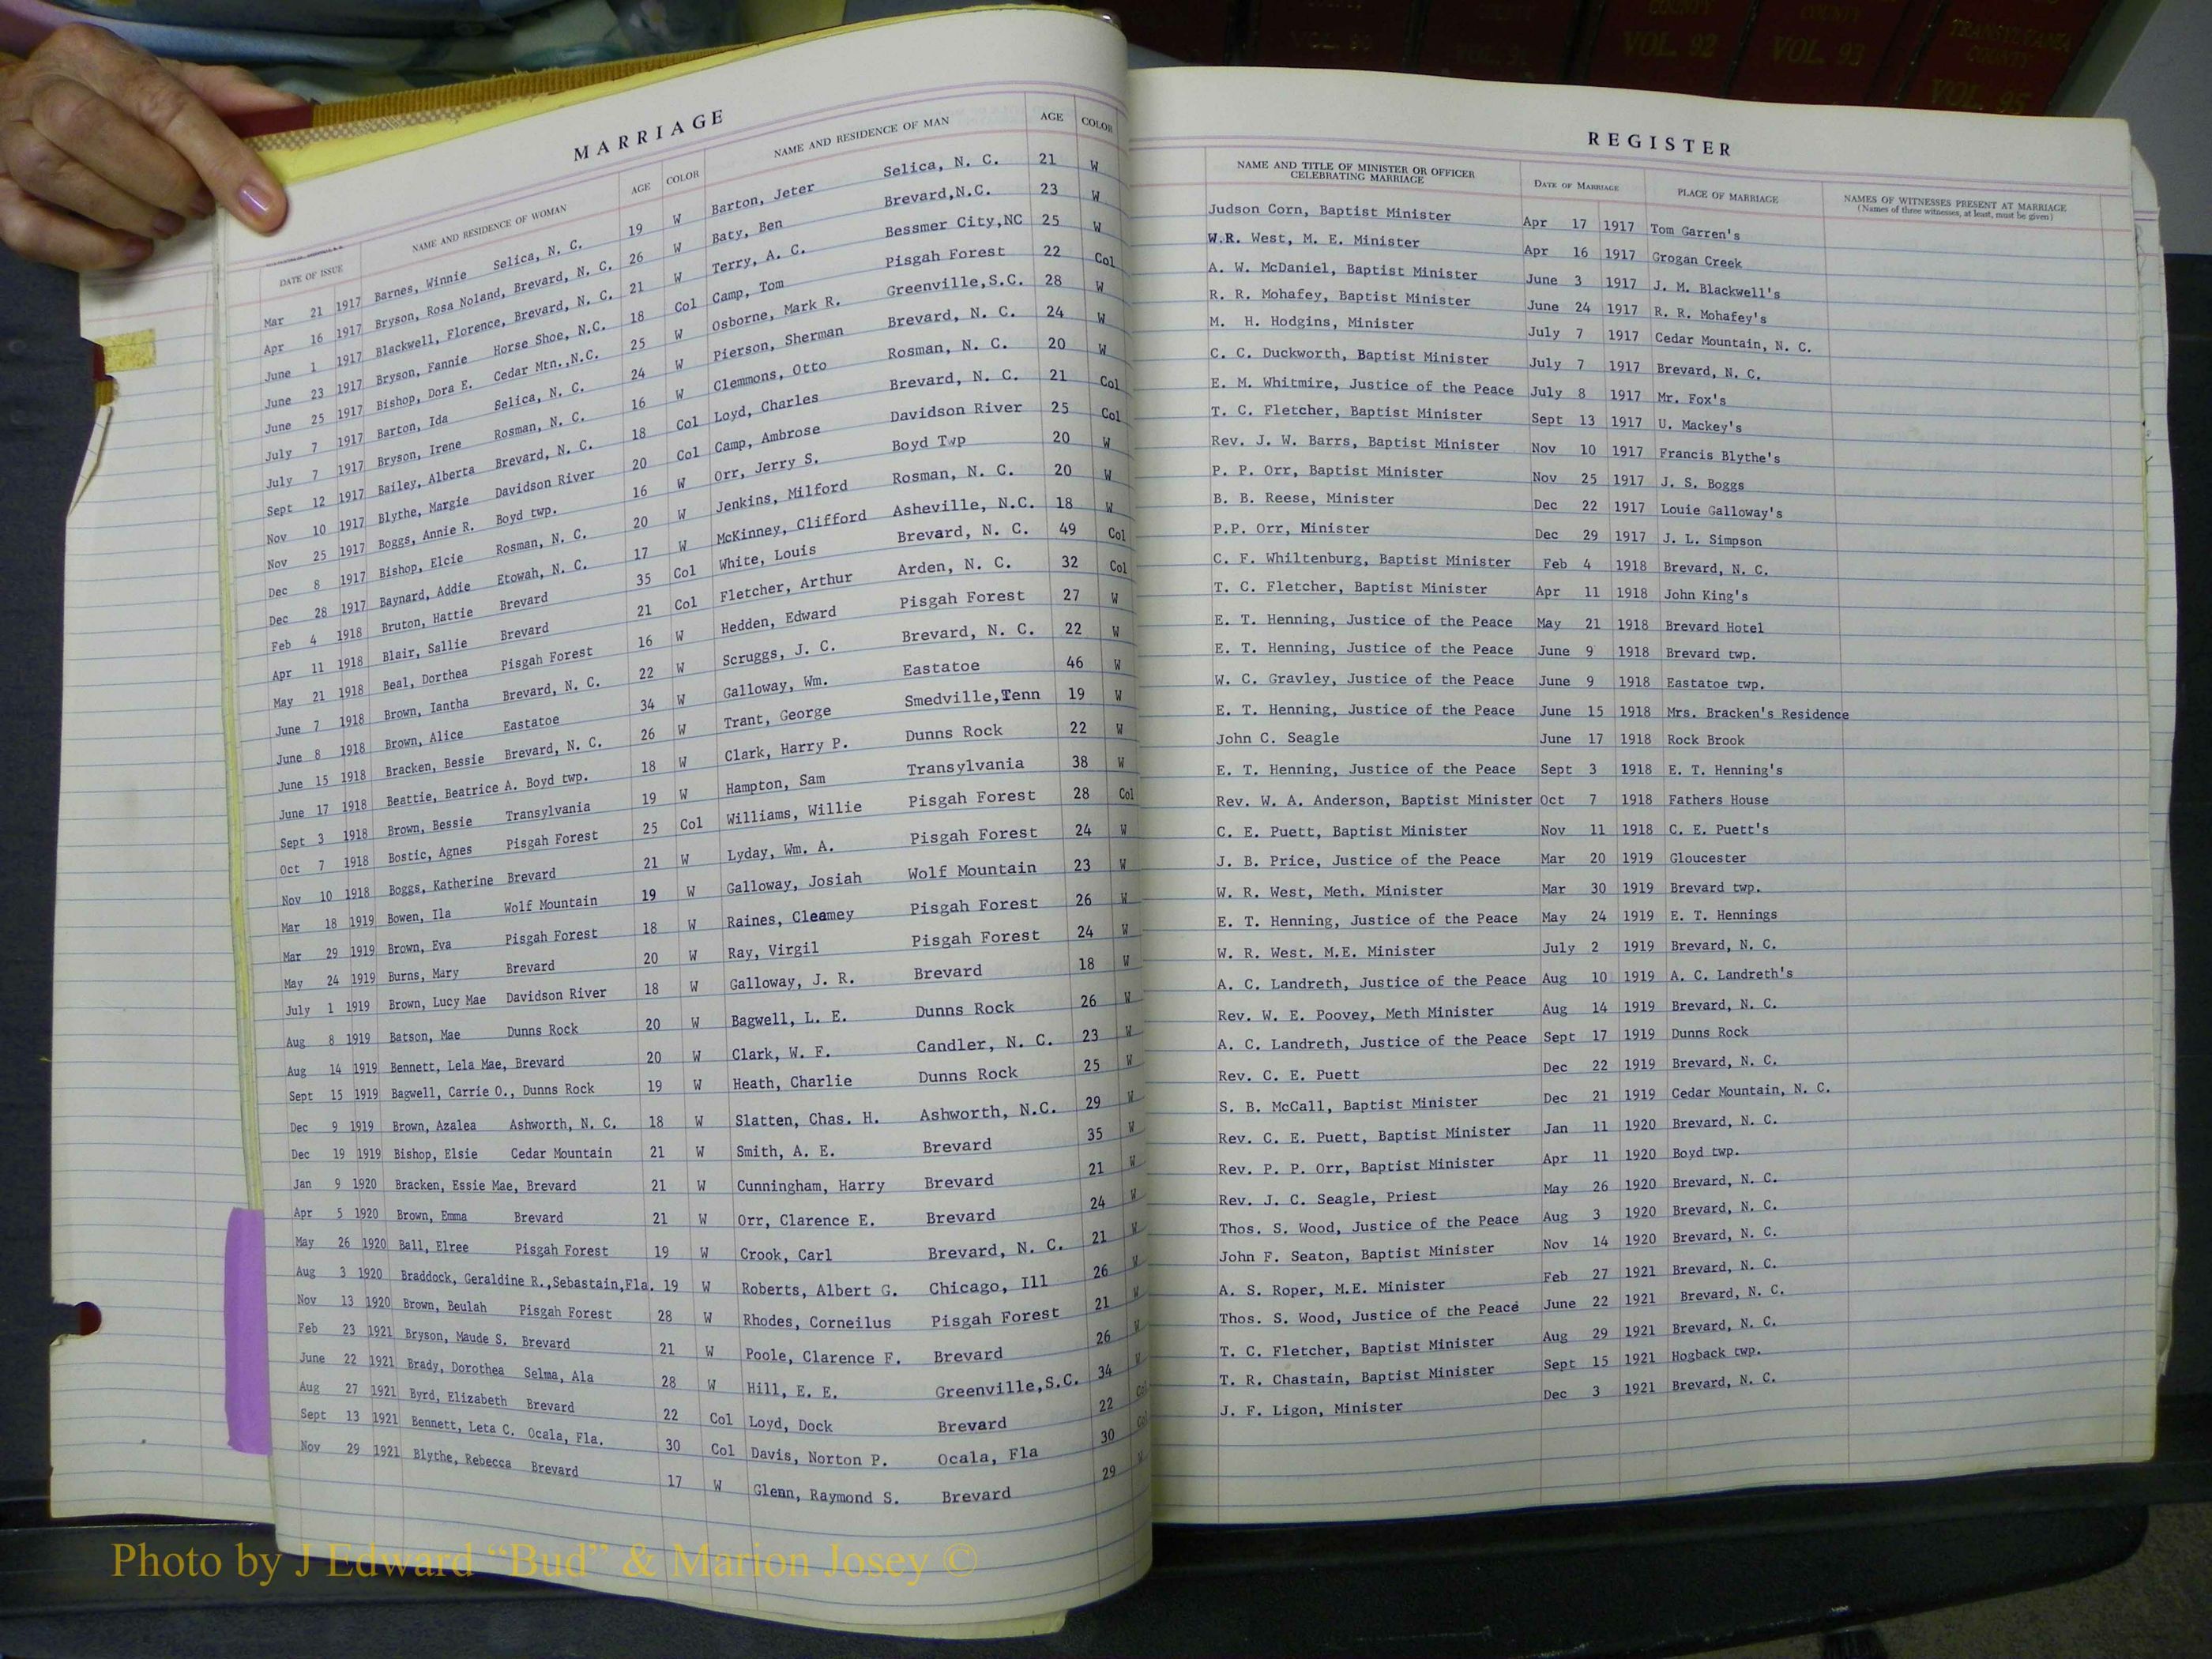 COUNTY VOL. 92
COUNTY VOL. 93
TRANSYLVANIA COUNTY VOL. 95
MARRIAGE
DATE OF ISSUE NAME AND RESIDENCE OF WOMAN AGE COLOR NAME AND RESIDENCE OF MAN AGE COLOR
Mar 21 1917 Barnes, Winnie Selica, N. C. 19 W Barton, Jeter Selica, N. C. 21 W
Apr 16 1917 Bryson, Rosa Noland, Brevard, N. C. 26 W Baty, Ben Brevard,N.C. 23 W
June 1 1917 Blackwell, Florence, Brevard, N. C. 21 W Terry, A. C. Bessmer City,NC 25 W
June 23 1917 Bryson, Fannie Horse Shoe, N.C. 18 Col Camp, Tom Pisgah Forest 22 Col
June 25 1917 Bishop, Dora E. Cedar Mtn.,N.C. 25 W Osborne, Mark R. Greenville,S.C. 28 W
July 7 1917 Barton, Ida Selica, N. C. 24 W Pierson, Sherman Brevard, N. C. 24 W
July 7 1917 Bryson, Irene Rosman, N. C. 16 W Clemmons, Otto Rosman, N. C. 20 W
Sept 12 1917 Bailey, Alberta Brevard, N. C. 18 Col Loyd, Charles Brevard, N. C. 21 Col
Nov 10 1917 Blythe, Margie Davidson River 20 Col Camp, Ambrose Davidson River 25 Col
Nov 25 1917 Boggs, Annie R. Boyd twp. 16 W Orr, Jerry S. Boyd Twp 20 W
Dec 8 1917 Bishop, Elcie Rosman, N. C. 20 W Jenkins, Milford Rosman, N. C. 20 W
Dec 28 1917 Baynard, Addie Etowah, N. C. 17 W McKinney, Clifford Asheville, N.C. 18 W
Feb 4 1918 Bruton, Hattie Brevard 35 Col White, Louis Brevard, N. C. 49 Col
Apr 11 1918 Blair, Sallie Brevard 21 Col Fletcher, Arthur Arden, N. C. 32 Col
May 21 1918 Beal, Dorthea Pisgah Forest 16 W Hedden, Edward Pisgah Forest 27 W
June 7 1918 Brown, Iantha Brevard, N. C. 22 W Scruggs, J. C. Brevard, N. C. 22 W
June 8 1918 Brown, Alice Eastatoe 34 W Galloway, Wm. Eastatoe 46 W
June 15 1918 Bracken, Bessie Brevard, N. C. 26 W Trant, George Smedville,Tenn 19 W
June 17 1918 Beattie, Beatrice A. Boyd twp. 18 W Clark, Harry P. Dunns Rock 22 W
Sept 3 1918 Brown, Bessie Transylvania 19 W Hampton, Sam Transylvania 38 W
Oct 7 1918 Bostic, Agnes Pisgah Forest 25 Col Williams, Willie Pisgah Forest 28 Col
Nov 10 1918 Boggs, Katherine Brevard 21 W Lyday, Wm. A. Pisgah Forest 24 W
Mar 18 1919 Bowen, Ila Wolf Mountain 19 W Galloway, Josiah Wolf Mountain 23 W
Mar 29 1919 Brown, Eva Pisgah Forest 18 W Raines, Cleamey Pisgah Forest 26 W
May 24 1919 Burns, Mary Brevard 20 W Ray, Virgil Pisgah Forest 24 W
July 1 1919 Brown, Lucy Mae Davidson River 18 W Galloway, J. R. Brevard 18 W
Aug 8 1919 Batson, Mae Dunns Rock 20 W Bagwell, L. E. Dunns Rock 26 W
Aug 14 1919 Bennett, Lela Mae, Brevard 20 W Clark, W. F. Candler, N. C. 23 W
Sept 15 1919 Bagwell, Carrie O., Dunns Rock 19 W Heath, Charlie Dunns Rock 25 W
Dec 9 1919 Brown, Azalea Ashworth, N. C. 18 W Slatten, Chas. H. Ashworth, N.C. 29 W
Dec 19 1919 Bishop, Elsie Cedar Mountain 21 W Smith, A. E. Brevard 35 W
Jan 9 1920 Bracken, Essie Mae, Brevard 21 W Cunningham, Harry Brevard 21 W
Apr 5 1920 Brown, Emma Brevard 21 W Orr, Clarence E. Brevard 24 W
May 26 1920 Ball, Elree Pisgah Forest 19 W Crook, Carl Brevard, N. C. 21 W
Aug 3 1920 Braddock, Geraldine R.,Sebastain,Fla. 19 W Roberts, Albert G. Chicago, Ill 26 W
Nov 13 1920 Brown, Beulah Pisgah Forest 28 W Rhodes, Corneilus Pisgah Forest 21 W
Feb 23 1921 Bryson, Maude S. Brevard 21 W Poole, Clarence F. Brevard 26 W
June 22 1921 Brady, Dorothea Selma, Ala 28 W Hill, E. E. Greenville,S.C. 34 W
Aug 27 1921 Byrd, Elizabeth Brevard 22 Col Loyd, Dock Brevard 22 Col
Sept 13 1921 Bennett, Leta C. Ocala, Fla. 30 Col Davis, Norton P. Ocala, Fla 30 Col
Nov 29 1921 Blythe, Rebecca Brevard 17 W Glenn, Raymond S. Brevard 29 W
REGISTER
NAME AND TITLE OF MINISTER OR OFFICER CELEBRATING MARRIAGE DATE OF MARRIAGE PLACE OF MARRIAGE NAMES OF WITNESSES PRESENT AT MARRIAGE
(Names of three witnesses, at least, must be given)
Judson Corn, Baptist Minister Apr 17 1917 Tom Garren's
W.R. West, M. E. Minister Apr 16 1917 Grogan Creek
A. W. McDaniel, Baptist Minister June 3 1917 J. M. Blackwell's
R. R. Mohafey, Baptist Minister June 24 1917 R. R. Mohafey's
M. H. Hodgins, Minister July 7 1917 Cedar Mountain, N. C.
C. C. Duckworth, Baptist Minister July 7 1917 Brevard, N. C.
E. M. Whitmire, Justice of the Peace July 8 1917 Mr. Fox's
T. C. Fletcher, Baptist Minister Sept 13 1917 U. Mackey's
Rev. J. W. Barrs, Baptist Minister Nov 10 1917 Francis Blythe's
P. P. Orr, Baptist Minister Nov 25 1917 J. S. Boggs
B. B. Reese, Minister Dec 22 1917 Louie Galloway's
P.P. Orr, Minister Dec 29 1917 J. L. Simpson
C. F. Whiltenburg, Baptist Minister Feb 4 1918 Brevard, N. C.
T. C. Fletcher, Baptist Minister Apr 11 1918 John King's
E. T. Henning, Justice of the Peace May 21 1918 Brevard Hotel
E. T. Henning, Justice of the Peace June 9 1918 Brevard twp.
W. C. Gravley, Justice of the Peace June 9 1918 Eastatoe twp.
E. T. Henning, Justice of the Peace June 15 1918 Mrs. Bracken's Residence
John C. Seagle June 17 1918 Rock Brook
E. T. Henning, Justice of the Peace Sept 3 1918 E. T. Henning's
Rev. W. A. Anderson, Baptist Minister Oct 7 1918 Fathers House
C. E. Puett, Baptist Minister Nov 11 1918 C. E. Puett's
J. B. Price, Justice of the Peace Mar 20 1919 Gloucester
W. R. West, Meth. Minister Mar 30 1919 Brevard twp.
E. T. Henning, Justice of the Peace May 24 1919 E. T. Hennings
W. R. West. M.E. Minister July 2 1919 Brevard, N. C.
A. C. Landreth, Justice of the Peace Aug 10 1919 A. C. Landreth's
Rev. W. E. Poovey, Meth Minister Aug 14 1919 Brevard, N. C.
A. C. Landreth, Justice of the Peace Sept 17 1919 Dunns Rock
Rev. C. E. Puett Dec 22 1919 Brevard, N. C.
S. B. McCall, Baptist Minister Dec 21 1919 Cedar Mountain, N. C.
Rev. C. E. Puett, Baptist Minister Jan 11 1920 Brevard, N. C.
Rev. P. P. Orr, Baptist Minister Apr 11 1920 Boyd twp.
Rev. J. C. Seagle, Priest May 26 1920 Brevard, N. C.
Thos. S. Wood, Justice of the Peace Aug 3 1920 Brevard, N. C.
John F. Seaton, Baptist Minister Nov 14 1920 Brevard, N. C.
A. S. Roper, M.E. Minister Feb 27 1921 Brevard, N. C.
Thos. S. Wood, Justice of the Peace June 22 1921 Brevard, N. C.
T. C. Fletcher, Baptist Minister Aug 29 1921 Brevard, N. C.
T. R. Chastain, Baptist Minister Sept 15 1921 Hogback twp.
J. F. Ligon, Minister Dec 3 1921 Brevard, N. C.
Photo by J Edward “Bud” & Marion Josey ©